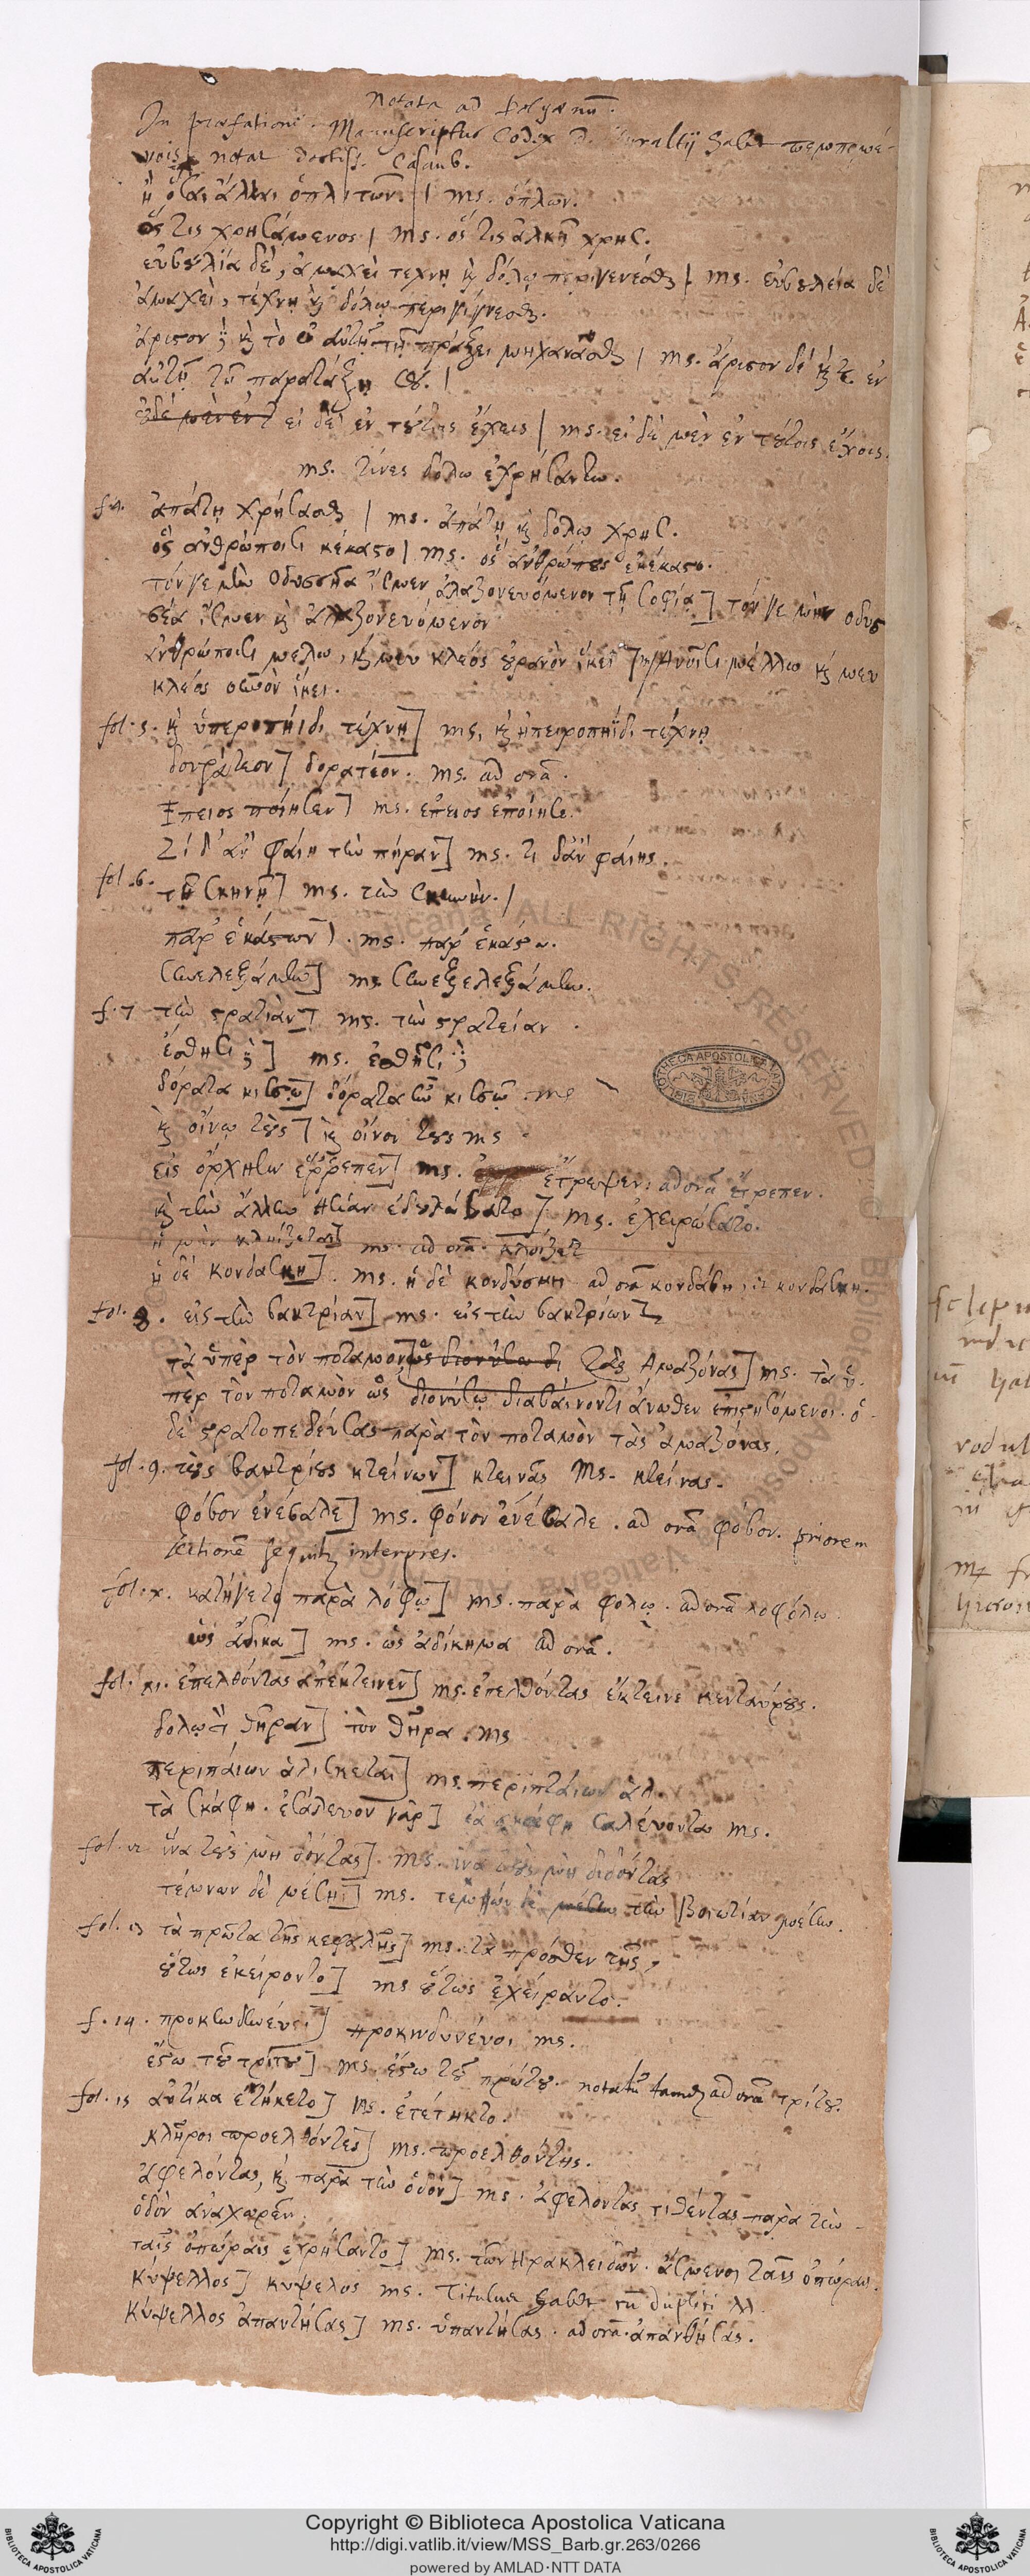 Notata ad Polyænũ.
In præfatione Manuscriptus Codex D. habet
notat doctiss. Casaub.
ὁπλιτῶν. | ms. ὅπλων.
ὅστις χρησάμενος | ms. ὅστις ἀλκῇ χρησ.
δὲ, ἀμαχεὶ τέχνῃ ϗ δόλῳ περιγενέσθαι | ms. δὲ
ἀμαχεὶ, τέχνῃ ϗ δόλῳ περιγίγνεσθαι.
ἄριστον ϗ τὸ αὐτῇ τῇ πράξει μηχανᾶσθαι | ms. ἄριστον δέ ϗ ἐν
αὐτῇ τῇ παρατάξῃ
εἰ δὲ ἐν τούτοις ἔχεις | ms. εἰ δὲ μὲν ἐν τούτοις ἔχοις.
ms. τίνες δόλῳ ἐχρήσαντο.
f. 4. ἀπάτῃ χρήσασθαι | ms. ἀπάτῃ ϗ δόλῳ χρησ.
ὃς ἀνθρώποισι κέκαστο | ms. ὃς ἀνθρώπους ἐκέκαστο.
τόν γε μὴν Ὀδυσσῆα ἴσμεν ἀλαζονευόμενον τῇ σοφίᾳ] τόν γε μὴν ὀδυσ
σέα ἴσμεν ϗ ἀλαζονευόμενον
ἀνθρώποισι μέλω, ϗ μευ κλέος οὐρανὸν ἵκει] ms. ἀνοισι μέλλω ϗ μευ
κλέος οὐνὸν ἵκει.
fol. 5. ϗ ὑπεροπηΐδι τέχνῃ] ms. ϗ ἠπειροπηΐδι τέχνῃ
δουράτεον] δορατέον. ms. ad orã.
Ἔπειος ποίησεν] ms. ἔπειος ἐποίησε.
Τί δ' ἂν φαίη τὴν πήραν] ms. τι δἂν φαίης.
fol. 6. τῇ σκηνῇ] ms. τὴν σκηνήν. |
παρ' ἑκάστων]. ms. παρ' ἑκάστου.
συνελεξάμην] ms. συνεξελεξάμην.
f. 7 τὴν στρατιὰν] ms. τὴν στρατείαν.
ἐσθῆσι] ms. ἐσθῆσι
δόρατα κισσῷ] δόρατα κισσῷ. ms
ϗ οἴνῳ τοὺς] ϗ οἴνου τους ms.
εἰς ὄρχησιν ἔτρεπεν] ms. ἔτρεψεν. ad orã ἔτρεπεν.
ϗ τὴν ἄλλην ἀσίαν ἐδουλώσατο] ms. ἐχειρώσατο.
ms. ad orã.
ἡ δὲ κονδάσκη]. ms. ἡ δὲ κονδύσκη ad orã κονδάβη,
fol. 8. εἰς τὴν βακτρίαν] ms. εἰς τὴν βακτρίων
τὰ ὑπὲρ τὸν ποταμὸν τὰς Ἀμαζόνας] ms. τὰ ὑ-
πὲρ τὸν ποταμὸν ὡς διονύσῳ διαβαίνοντι ἄνωθεν ἐπιθησόμενοι. ὁ
δὲ στρατοπεδεύσας παρὰ τὸν ποταμὸν τὰς ἀμαζόνας.
fol. 9. τοὺς βακτρίους κτείνων] κτεινὰς Ms. κτείνας.
φόβον ἐνέβαλε] ms. φόνον ἐνέβαλε. ad orã φόβον. priorem
lectionẽ sequitur interpres.
fol. x. κατήγετο παρὰ λόφῳ] ms. παρὰ φόλῳ. ad orã λοφόλῳ.
ὡς ἄδικα] ms. ὡς ἀδίκημα ad orã.
fol. xi. ἐπελθόντας ἀπέκτεινεν] ms. ἐπελθόντας ἔκτεινε κενταύρους.
θῆραν] τὸν θῆρα. ms
περιπαίων ἁλίσκεται] ms. περιπταίων ἁλ.
τὰ σκάφη. ἐσάλευον γὰρ] τὰ σκάφη σαλεύοντα ms.
fol. 12 ἵνα τοὺς μὴ ὄντας] ms. ἵνα τοὺς μὴ διδόντας
τέμνων δὲ μέσην] ms. τεμὼν δὲ τὴν βοιωτίαν μέσην.
fol. 13 τὰ πρῶτα τῆς κεφαλῆς] ms. τὰ πρόσθεν τῆς
οὕτως ἐκείροντο] ms οὕτως ἐχείραντο.
f. 14. προκινδυνεύσει] προκινδυνεύσοι ms.
ἔσω τοῦ τρίτου] ms. ἔσω τοῦ πρώτου. notatũ tamen ad orã τρίτου.
fol. 15 αὐτίκα ἐτήκετο] ms. ἐτέτηκτο.
κλῆροι προελθόντες] ms. προελθόντης.
ἀφελόντας, ϗ παρὰ τὴν ὁδὸν] ms. ἀφελόντας τιθέντας παρὰ τὴν
ὁδὸν ἀναχωρεῖν.
ταῖς ὀπώραις ἐχρήσαντο] ms. τῶν Ἡρακλειδῶν. ταῖς ὀπώραις.
κύψελλος] κυψελος ms. Titulus habet cũ duplici λλ.
Κύψελλος ἀπαντήσας] ms. ὑπαντήσας. ad orã. ἀπαντήσας.
Copyright © Biblioteca Apostolica Vaticana
http://digi.vatlib.it/view/MSS_Barb.gr.263/0266
powered by AMLAD·NTT DATA